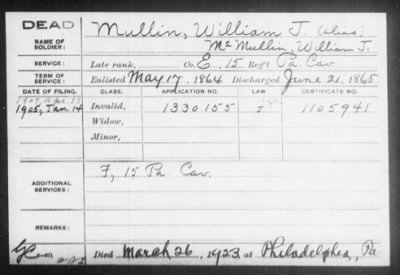 DEAD
Mullin, William J. (alias)
NAME OF SOLDIER:
McMullin, William J.
SERVICE:
Late rank, Co. E, 15 Reg't Pa. Cav.
TERM OF SERVICE:
Enlisted May 17, 1864 Discharged June 21, 1865
DATE OF FILING. CLASS. APPLICATION NO. LAW CERTIFICATE NO.
1905, Jan. 14 Invalid, 1330155 1105941
Widow,
Minor,
ADDITIONAL SERVICES:
F, 15 Pa. Cav.
REMARKS:
Died March 26, 1923, at Philadelphia, Pa.